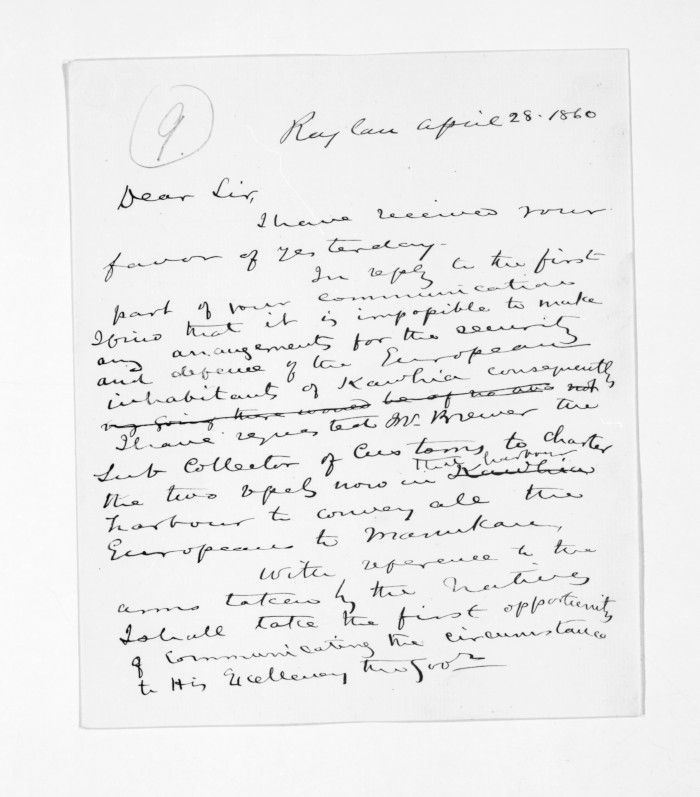 9.
Raglan April 28. 1860
Dear Sir,
I have received your
favor of yesterday.
In reply to the first
part of your communication
I find that it is impossible to make
any arrangements for the security
and defence of the European
inhabitants of Kawhia consequently
my going there would be of no and not
I have requested Mr. Brewer the
Sub Collector of Customs to charter
the two vessels now in that harbour Kawhia
harbour to convey all the
Europeans to Manukau,
With reference to the
arms taken by the Natives
I shall take the first opportunity
of communicating the circumstance
to His Excellency the Govr